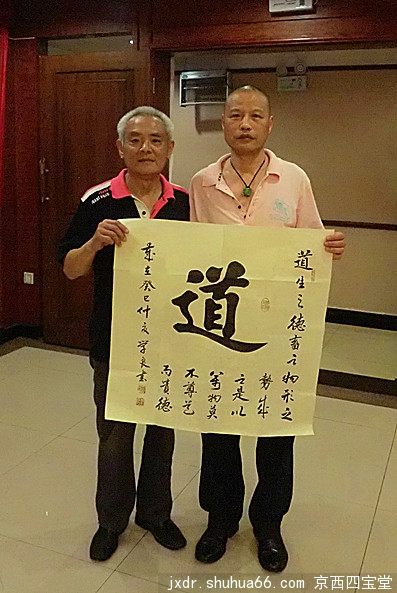 道
道生之德畜之物形之
勢成
之是以
萬物莫
不尊道
而貴德
歲在癸巳仲夏學良書
jxdr.shuhua66.com 京西四宝堂